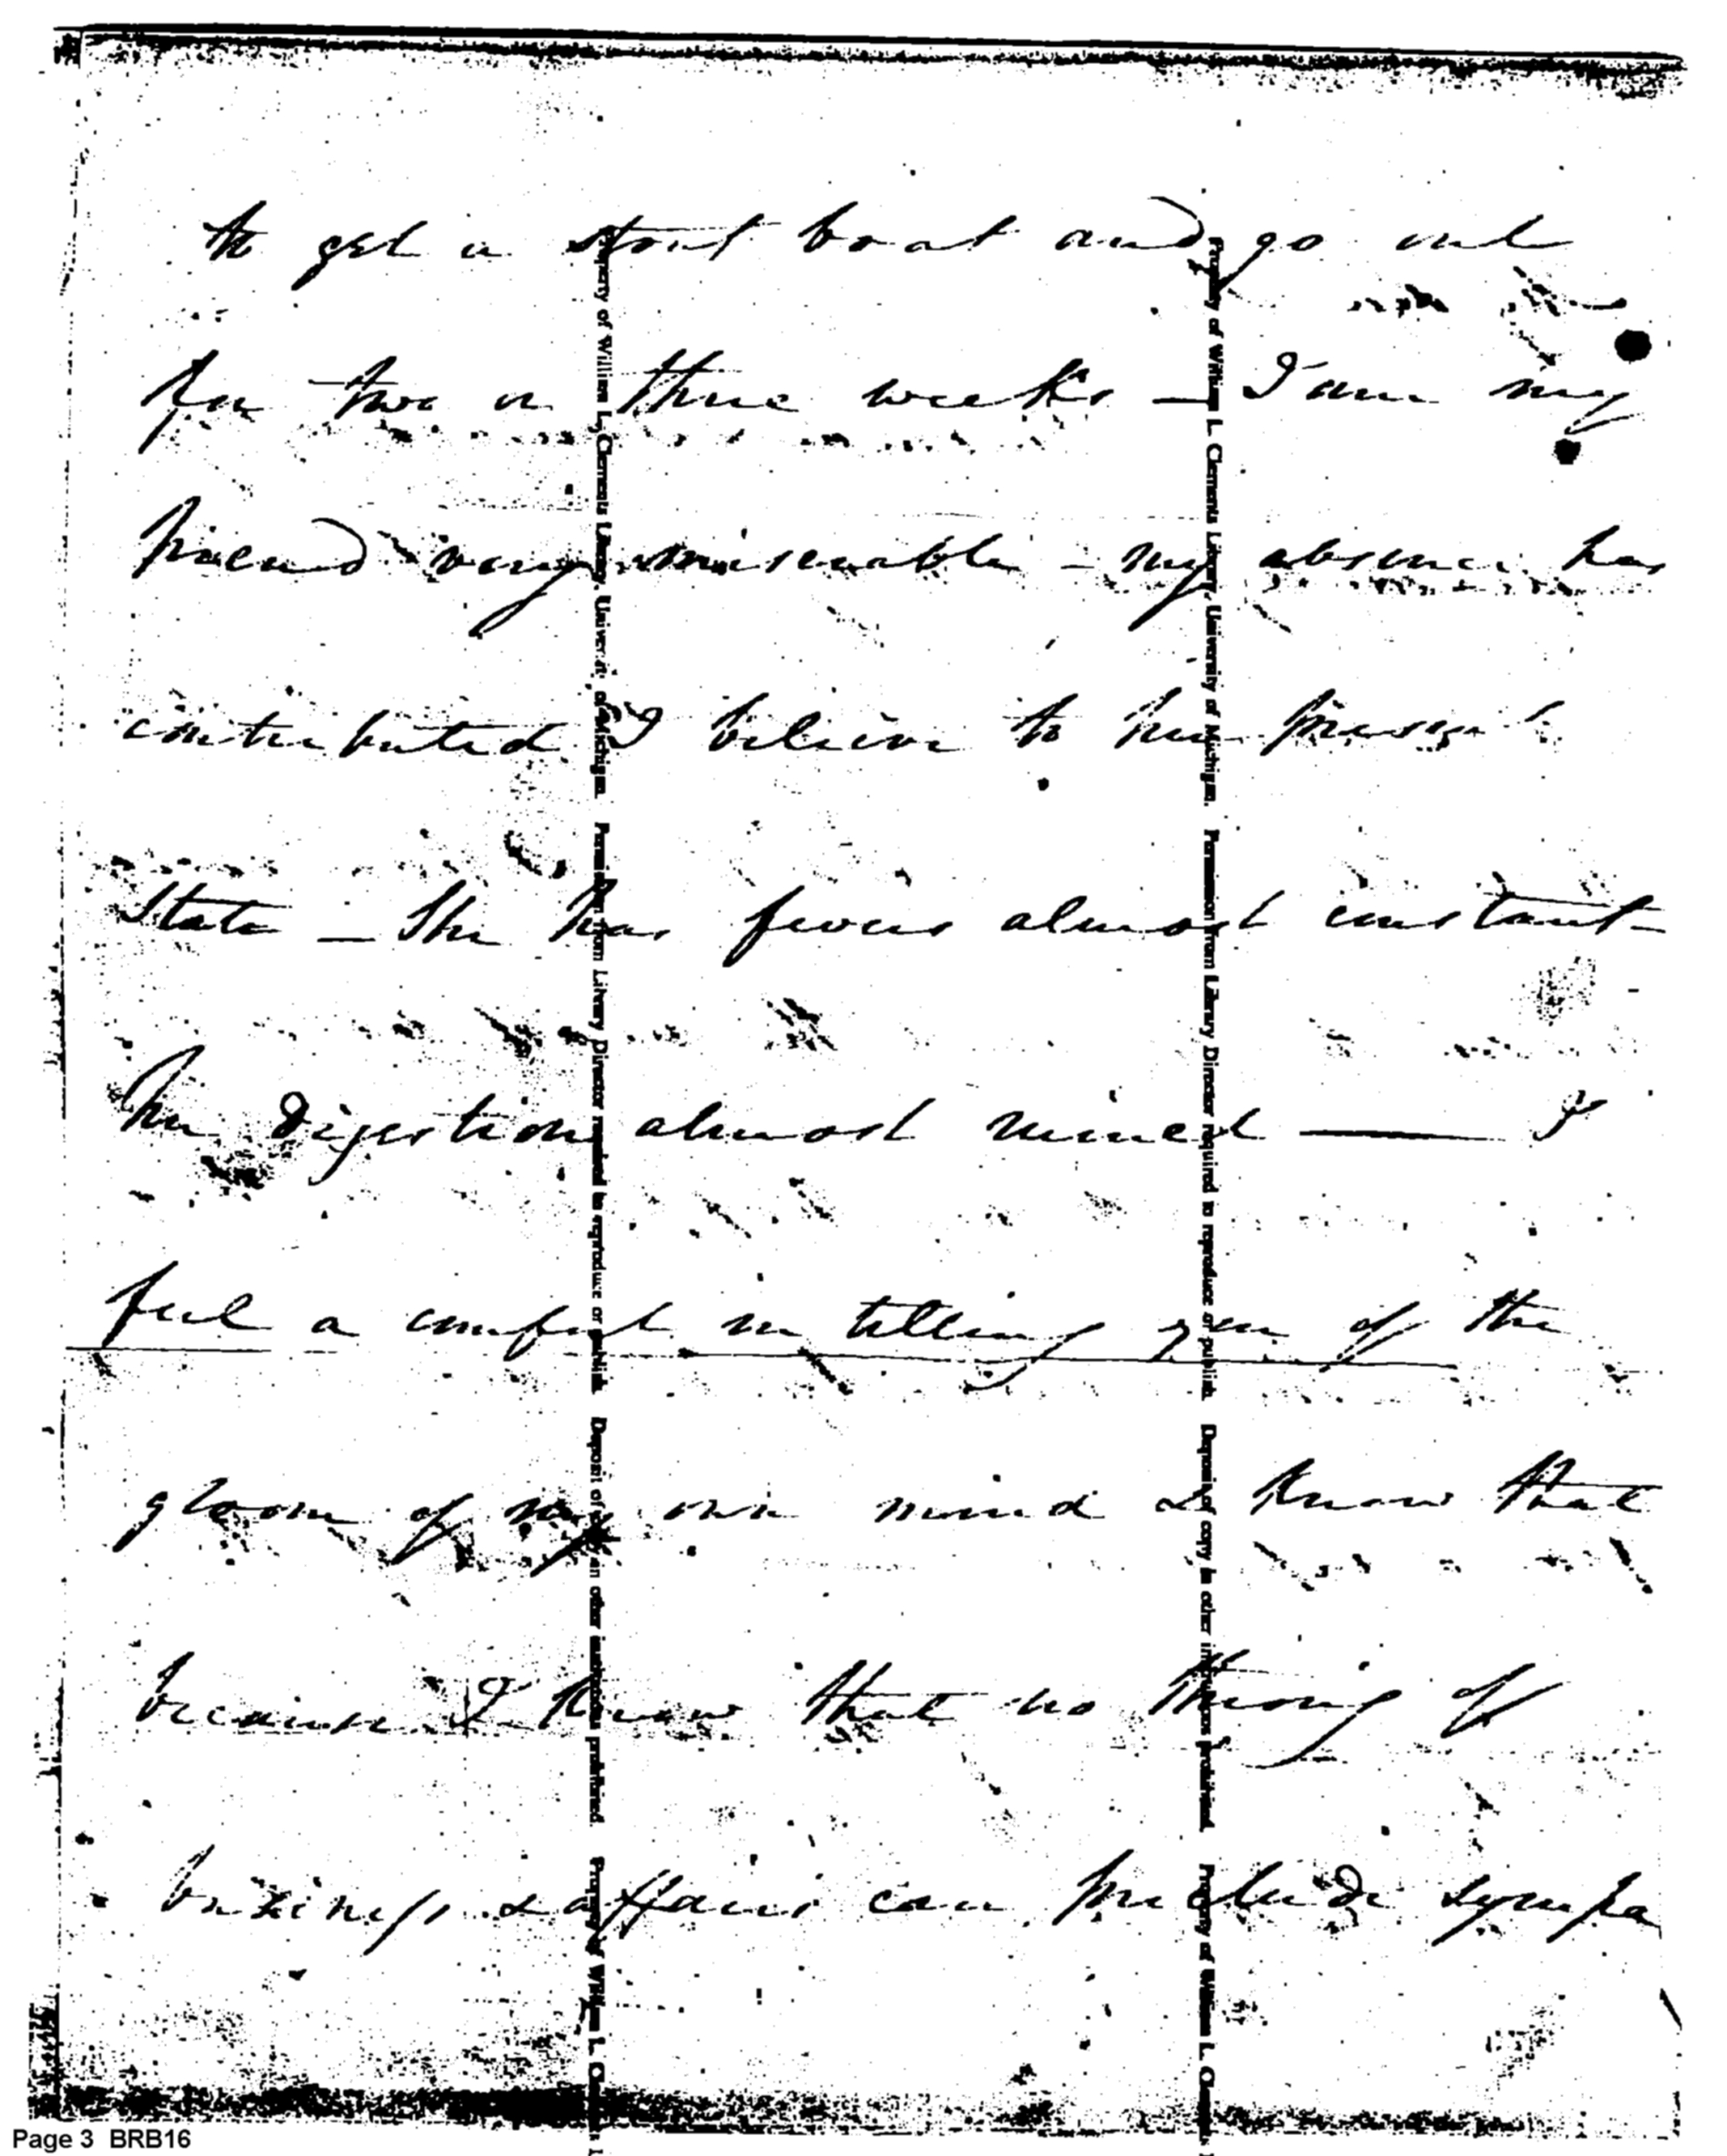 to get a stout boat and go out
for two or three weeks – I am my
friend very miserable – my absence has
contributed I believe to her present
state – She has fevers almost constant –
her digestion almost ruined —— I
feel a comfort in telling you of the
gloom of my own mind & know that
because I know that no throng of
business & affairs can preclude sympa
Property of William L. Clements Library, University of Michigan. Permission from Library Director required to reproduce or publish. Deposit of copy in other institutions prohibited. Property of William L.
Property of William L. Clements Library, University of Michigan. Permission from Library Director required to reproduce or publish. Deposit of copy in other institutions prohibited. Property of William L.
Page 3 BRB16